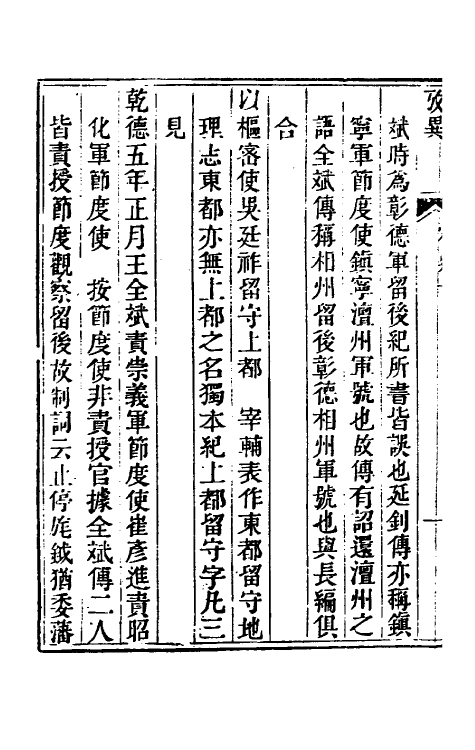 攷異
斌時爲彰德軍留後紀所書皆誤也延釗傳亦稱鎮
寧軍節度使鎮寧澶州軍號也故傳有詔還澶州之
語全斌傳稱相州留後彰德相州軍號也與長編俱
合
以樞密使吳廷祚留守上都　宰輔表作東都留守地
理志東都亦無上都之名獨本紀上都留守字凡三
見
乾德五年正月王全斌責崇義軍節度使崔彥進責昭
化軍節度使　按節度使非責授官據全斌傳二人
皆責授節度觀察留後故制詞云止停旄鉞猶委藩